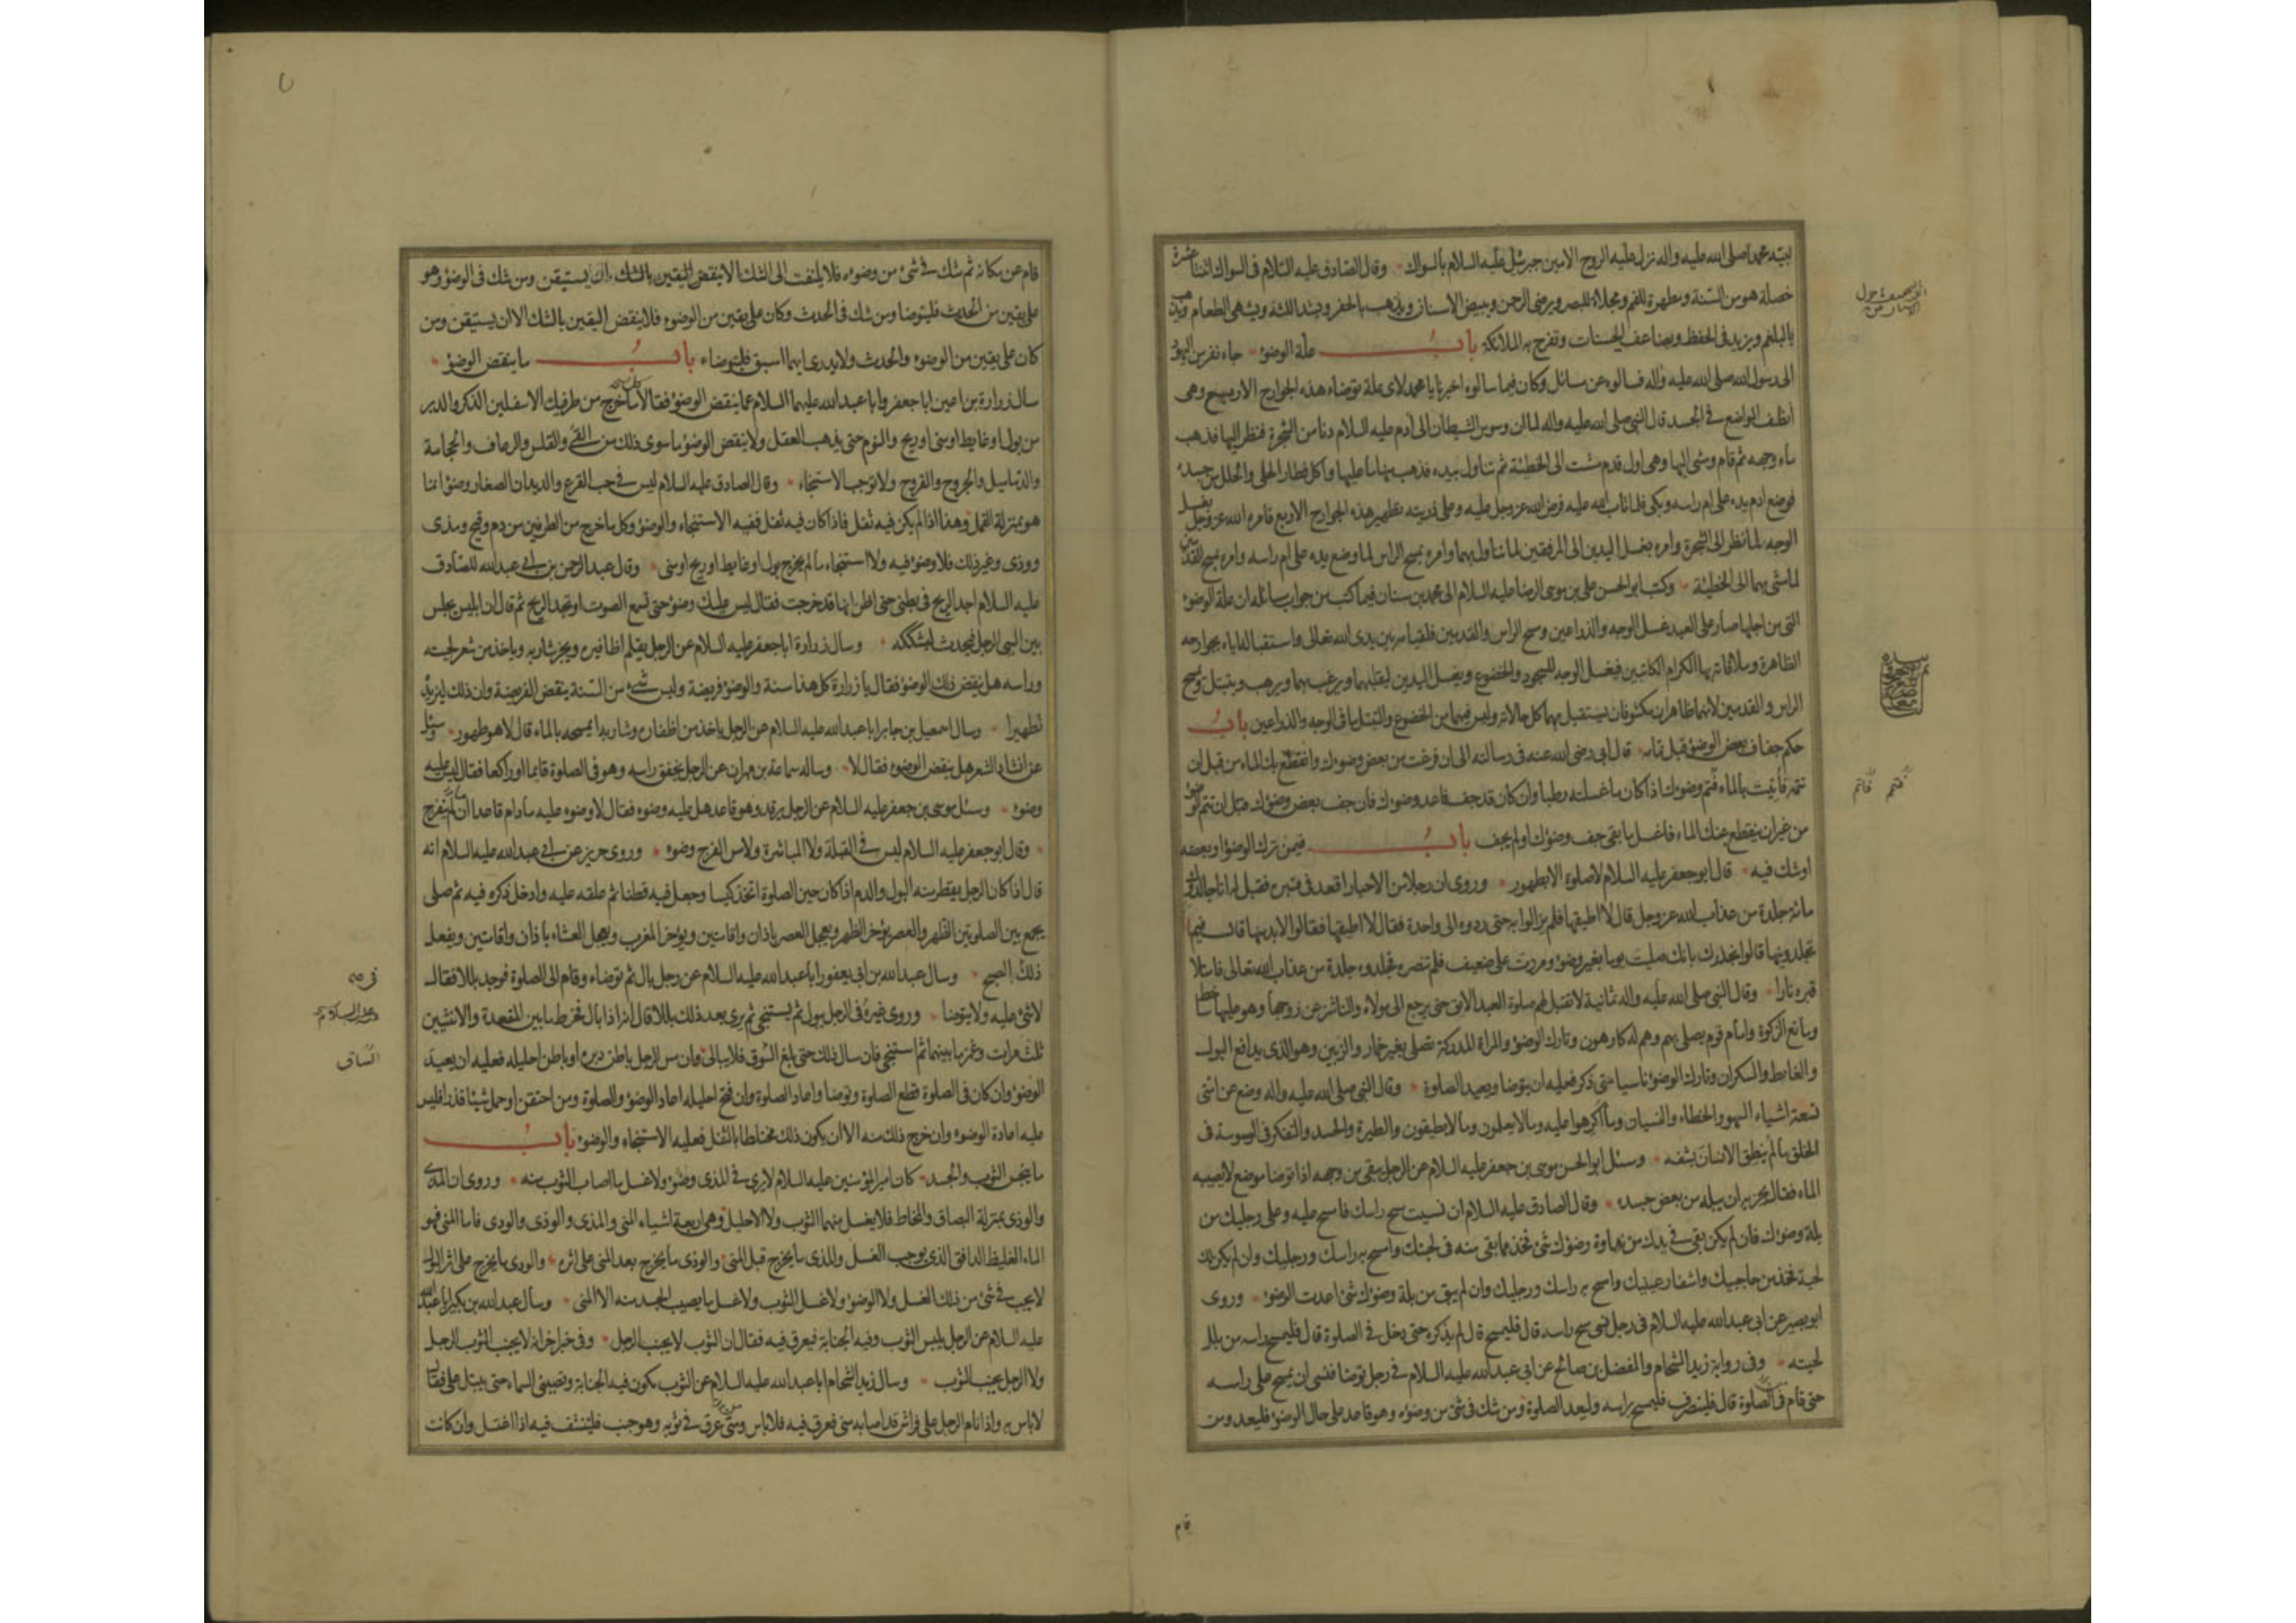 نبيه محمدا صلى الله عليه واله نزل عليه الروح الامين جبرئيل عليه السلام بالسواك وقال الصادق عليه السلام فى السواك اثنتا عشرة
خصلة هو من السنة ومطهرة للفم ومجلاة للبصر ويرضى الرحمن ويبيض الاسنان ويذهب بالحفر ويشد اللثة ويشهى الطعام ويذهب
بالبلغم ويزيد فى الحفظ ويضاعف الحسنات وتفرح به الملائكة باب علة الوضوء جاء نفر من اليهود
الى رسول الله صلى الله عليه واله فسالوه عن مسائل وكان فيما سالوه اخبرنا يا محمد لاى علة توضاء هذه الجوارح الاربع وهى
انظف المواضع فى الجسد قال النبى صلى الله عليه واله لما ان وسوس الشيطان الى ادم عليه السلام دنا من الشجرة فنظر اليها فذهب
ماء وجهه ثم قام ومشى اليها وهى اول قدم مشت الى الخطيئة ثم تناول بيده منها ما عليها واكل فطار الحلى والحلل من جسده
فوضع ادم يده على ام راسه وبكى فلما تاب الله عليه فرض الله عز وجل عليه وعلى ذريته تطهير هذه الجوارح الاربع فامره الله عز وجل بغسل
الوجه لما نظر الى الشجرة وامره بغسل اليدين الى المرفقين لما تناول بهما وامره بمسح الراس لما وضع يده على ام راسه وامره بمسح القدمين
لما مشى بهما الى الخطيئة وكتب ابو الحسن على بن موسى الرضا عليه السلام الى محمد بن سنان فيما كتب من جواب مسائله ان علة الوضوء
التى من اجلها صار على العبد غسل الوجه والذراعين ومسح الراس والقدمين فلقيامه بين يدى الله تعالى واستقباله اياه بجوارحه
الظاهرة وملاقاته بها الكرام الكاتبين فيغسل الوجه للسجود والخضوع ويغسل اليدين ليقلبهما ويرغب بهما ويرهب ويتبتل ويمسح
الراس والقدمين لانهما ظاهران مكشوفان يستقبل بهما كل حالاته وليس فيهما من الخضوع والتبتل ما فى الوجه والذراعين باب
حكم جفاف بعض الوضوء قبل تمامه قال ابى رضى الله عنه فى رسالته الى ان فرغت من بعض وضوءك وانقطع بك الماء من قبل ان
تتمه فاتيت بالماء فتمم وضوءك اذا كان ما غسلته رطبا وان كان قد جف فاعد وضوءك فان جف بعض وضوءك قبل ان تتم الوضوء
من غير ان ينقطع عنك الماء فاغسل ما بقى جف وضوءك او لم يجف باب فيمن ترك الوضوء او بعضه
او شك فيه قال ابو جعفر عليه السلام لا صلوة الا بطهور وروى ان رجلا من الاحبار اقعد فى قبره فقيل له انا جالدوك
مائة جلدة من عذاب الله عز وجل قال لا اطيقها فلم يزالوا به حتى ردوه الى واحدة فقال لا اطيقها فقالوا لا بد منها قال فيما
تجلدونيها قالوا نجلدك بانك صليت يوما بغير وضوء ومررت على ضعيف فلم تنصره فجلدوه جلدة من عذاب الله تعالى فامتلا
قبره نارا وقال النبى صلى الله عليه واله ثمانية لا تقبل لهم صلوة العبد الابق حتى يرجع الى مولاه والناشز عن زوجها وهو عليها ساخط
ومانع الزكوة وامام قوم يصلى بهم وهم له كارهون وتارك الوضوء والمراة المدركة تصلى بغير خمار والزبين وهو الذى يدافع البول
والغايط والسكران وتارك الوضوء ناسيا متى ذكر فعليه ان يتوضا ويعيد الصلوة وقال النبى صلى الله عليه واله وضع عن امتى
تسعة اشياء السهو والخطاء والنسيان وما اكرهوا عليه وما لا يعلمون وما لا يطيقون والطيرة والحسد والتفكر فى الوسوسة فى
الخلق ما لم ينطق الانسان بشفه وسئل ابو الحسن موسى بن جعفر عليه السلام عن الرجل يبقى من وجهه اذا توضا موضع لا يصيبه
الماء فقال يجزيه ان يبله من بعض جسده وقال الصادق عليه السلام ان نسيت مسح راسك فامسح عليه وعلى رجليك من
بلة وضوءك فان لم يكن بقى فى يدك من نداوة وضوءك شئ فخذ مما بقى منه فى لحيتك وامسح به راسك ورجليك وان لم يكن لك
لحية فخذ من حاجبيك واشفار عينيك وامسح به راسك ورجليك وان لم يبق من بلة وضوءك شئ اعدت الوضوء وروى
ابو بصير عن ابى عبد الله عليه السلام فى رجل نسى مسح راسه قال فليمسح قال لم يذكره حتى دخل فى الصلوة قال فليمسح راسه من بلل
لحيته وفى رواية زيد الشحام والمفضل بن صالح عن ابى عبد الله عليه السلام فى رجل توضا فنسى ان يمسح على راسه
حتى قام فى الصلوة قال فلينصرف فليمسح براسه وليعد الصلوة ومن شك فى شئ من وضوءه وهو قاعد على حال الوضوء فليعد ومن
فتمم فاتم
قام
٧
قام عن مكانه ثم شك فى شئ من وضوءه فلا يلتفت الى الشك الا ينقض اليقين بالشك الا ان يستيقن ومن شك فى الوضوء وهو
على يقين من الحدث فليتوضا ومن شك فى الحدث وكان على يقين من الوضوء فلا ينقض اليقين بالشك الا ان يستيقن ومن
كان على يقين من الوضوء والحدث ولا يدرى ايهما اسبق فليتوضاء باب ما ينقض الوضوء
سال زرارة بن اعين ابا جعفر وابا عبد الله عليهما السلام عما ينقض الوضوء فقالا ما خرج من طرفيك الاسفلين الذكر والدبر
من بول او غايط او منى او ريح والنوم حتى يذهب العقل ولا ينقض الوضوء ما سوى ذلك من القئ والقلس والرعاف والحجامة
والدماميل والجروح والقروح ولا توجب الاستنجاء وقال الصادق عليه السلام ليس فى حب القرع والديدان الصغار وضوء انما
هو بمنزلة القمل وهذا اذا لم يكن فيه ثفل فاذا كان فيه ثفل ففيه الاستنجاء والوضوء وكل ما خرج من الطرفين من دم وقيح ومذى
ووذى وغير ذلك فلا وضوء فيه ولا استنجاء ما لم يخرج بول او غايط او ريح او منى وقال عبد الرحمن بن ابى عبد الله للصادق
عليه السلام اجد الريح فى بطنى حتى اظن انها قد خرجت فقال ليس عليك وضوء حتى تسمع الصوت او تجد الريح ثم قال ان ابليس يجلس
بين اليتى الرجل فيحدث ليشككه وسال زرارة ابا جعفر عليه السلام عن الرجل يقلم اظافيره ويجز شاربه وياخذ من شعر لحيته
وراسه هل ينقض ذلك الوضوء فقال يا زرارة كل هذا سنة والوضوء فريضة وليس شئ من السنة ينقض الفريضة وان ذلك ليزيده
تطهيرا وسال اسمعيل بن جابر ابا عبد الله عليه السلام عن الرجل ياخذ من اظفاره وشاربه ايمسحه بالماء قال لا هو طهور وسئل
عن انشاد الشعر هل ينقض الوضوء فقال لا وساله سماعة بن مهران عن الرجل يخفق راسه وهو فى الصلوة قايما او راكعا فقال ليس عليه
وضوء وسئل موسى بن جعفر عليه السلام عن الرجل يرقد وهو قاعد هل عليه وضوء فقال لا وضوء عليه ما دام قاعدا ان لم ينفرج
وقال ابو جعفر عليه السلام ليس فى القبلة ولا المباشرة ولا مس الفرج وضوء وروى حريز عن ابى عبد الله عليه السلام انه
قال اذا كان الرجل يقطر منه البول والدم اذا كان حين الصلوة اتخذ كيسا وجعل فيه قطنا ثم علقه عليه وادخل ذكره فيه ثم صلى
يجمع بين الصلوتين الظهر والعصر يؤخر الظهر ويعجل العصر باذان واقامتين ويؤخر المغرب ويعجل العشاء باذان واقامتين ويفعل
ذلك الصبح وسال عبد الله بن ابى يعفور ابا عبد الله عليه السلام عن رجل بال ثم توضاء وقام الى الصلوة فوجد بللا فقال
لا شئ عليه ولا يتوضا وروى غيره فى الرجل يبول ثم يستنجى ثم يرى بعد ذلك بللا قال انه اذا بال فخرط ما بين المقعدة والانثيين
ثلث مرات وغمز ما بينهما ثم استنجى فان سال ذلك حتى بلغ السوق فلا يبالى وان مس الرجل باطن دبره او باطن احليله فعليه ان يعيد
الوضوء وان كان فى الصلوة قطع الصلوة وتوضا واعاد الصلوة وان فتح احليله اعاد الوضوء والصلوة ومن احتقن او حمل شيئا قذرا فليس
عليه اعادة الوضوء وان خرج ذلك منه الا ان يكون ذلك مختلطا بالثفل فعليه الاستنجاء والوضوء باب
ما ينجس الثوب والجسد كان امير المؤمنين عليه السلام لا يرى فى المذى وضوء ولا غسل ما اصاب الثوب منه وروى ان المذى
والوذى بمنزلة البصاق والمخاط فلا يغسل منهما الثوب ولا الاحليل وهى اربعة اشياء المنى والمذى والوذى والودى فاما المنى فهو
الماء الغليظ الدافق الذى يوجب الغسل والمذى ما يخرج قبل المنى والوذى ما يخرج بعد المنى على اثره والودى ما يخرج على اثر البول
لا يجب فى شئ من ذلك الغسل ولا الوضوء ولا غسل الثوب ولا غسل ما يصيب الجسد منه الا المنى وسال عبد الله بن بكير ابا عبد الله
عليه السلام عن الرجل يلبس الثوب وفيه الجنابة فيعرق فيه فقال ان الثوب لا يجنب الرجل وفى خبر اخر انه لا يجنب الثوب الرجل
ولا الرجل يجنب الثوب وسال زيد الشحام ابا عبد الله عليه السلام عن الثوب يكون فيه الجنابة وتصيبنى السماء حتى يبتل على فقال
لا باس به واذا نام الرجل على فراش قد اصابه منى فعرق فيه فلا باس ومتى عرق فى ثوبه وهو جنب فليتنشف فيه اذا اغتسل وان كانت
عليه السلام
الساق